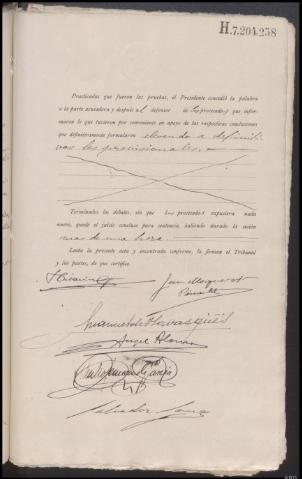 H.7.204.258
Practicadas que fueron las pruebas, el Presidente concedió la palabra
a la parte acusadora y después al defensor de los procesados que infor-
maron lo que tuvieron por conveniente en apoyo de las respectivas conclusiones
que definitivamente formularon elevando a definiti-
vas las provisionales.
Terminados los debates, sin que los procesados expusiera nada
nuevo, quedó el juicio concluso para sentencia, habiendo durado la sesión
mas de una hora.
Leída la presente acta y encontrada conforme, la firman el Tribunal
y las partes, de que certifico.
Angel Alonso
Salvador